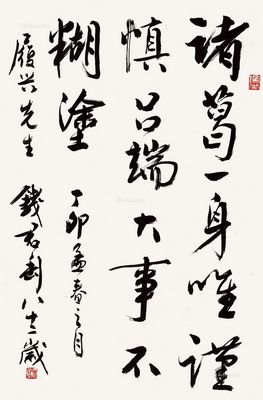 諸葛一身唯謹
慎吕端大事不
糊塗
丁卯孟春之月
履兴先生
錢君匋八十二歲